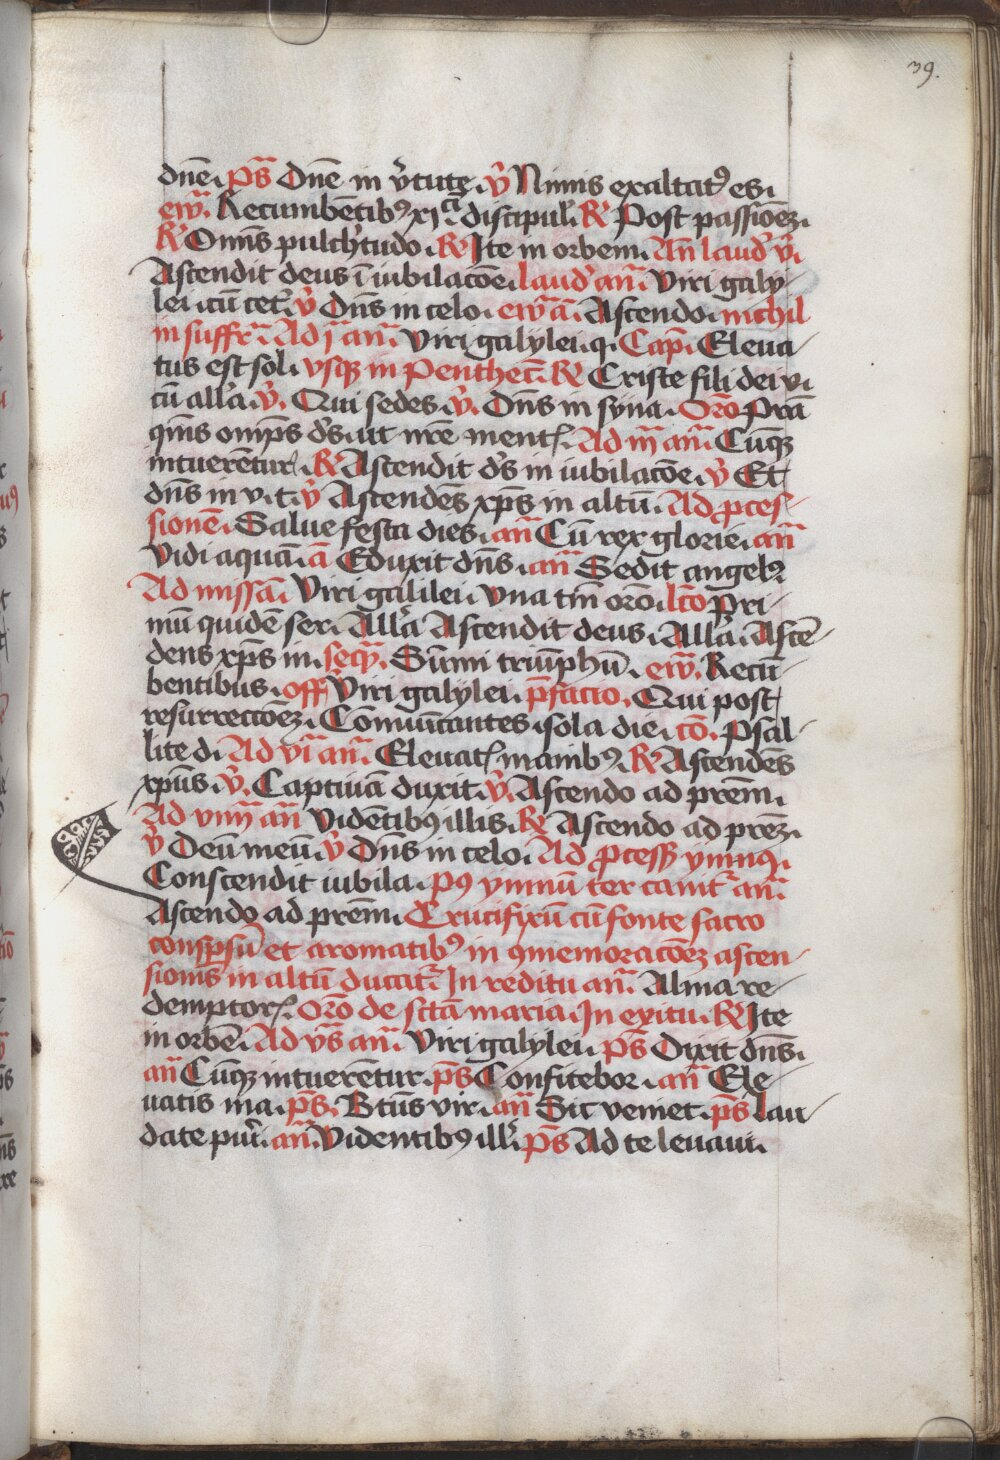 39.
dn̄e. ps̄ Dn̄e in v̄tute. v̄ Nimis exaltatꝰ es.
ew̄. Recumbētibꝰ xiᶜⁱ discipul'. R̄ Post passiōeꝫ.
R̄ Omīs pulchᵗtudo. R̄ Ite in orbem. An̄ laud' v̄i
Ascendit deus ī iubilacōe. laud' an̄. Viri galy
lei. cū cet'. v̄ Dn̄s in celo. ew̄ā. Ascendo. nichil
in suffr̄. Ad j an̄. Viri galylei. q. Cap̄. Eleua
tus est sol. vsqꝫ in Penthec̄. R̄ Criste fili dei vi
cū all'a. v̄. Qui sedes. v̄. Dn̄s in syna. Or̄o Prā
qm̄s om̄ps d's. ut nr̄e ment. Ad iij an̄. Cūqꝫ
intuerētur. R̄ Ascendit d's in iubilacōe. v̄ Et
dn̄s in v. t. v̄ Ascendēs xp̄s in altū. Ad ꝓces
sionē. Salue festa dies. an̄ Cū rex glorie. an̄
Vidi aquā. ā Eduxit dn̄s. an̄ Sedit angelꝰ
Ad missā. Viri galilei. vna tm̄ or̄o. lc̄o Pri
mū quidē ser. All'a Ascendit deus. All'a. Ascē
dens xp̄s in. seq̄. Sūmi triūphū. ew̄. Recū
bentibus. off Viri galylei. p̄facio. Qui post
resurrectōeꝫ. Com̄unicantes. sola die. cō. Psal
lite d. Ad vi an̄. Eleuat manibꝰ. R̄ Ascendēs
xpūs. v̄. Captiuā duxit. v̄. Ascendo ad prēm.
Ad viiij an̄ Vidētibꝰ illis. R̄ Ascendo ad prēꝫ.
v̄ Deū meū. v̄ Dn̄s in celo. Ad ꝓcess ymnꝰ.
Conscendit iubila. Pꝰ ymnū ter canit' an̄.
Ascendo ad prēm. Crucifixū cū fonte sacro
conspsū et aromatibꝰ in ꝯmemoracōeꝫ ascen
sionis in altū ducat'. In reditu an̄. Alma re
demptor. Or̄o de sctā maria. In exitu. R̄ Ite
in orbē. Ad vs̄ an̄. Viri galylei. ps̄ Dixit dn̄s.
an̄ Cūqꝫ intuerētur. ps̄ Confitebor. an̄ Ele
uatis ma. ps̄. Btūs vir. an̄ Sic veniet. ps̄ Lau
date pur̄i. an̄. Videntibꝰ ill'. ps̄ Ad te leuaui.